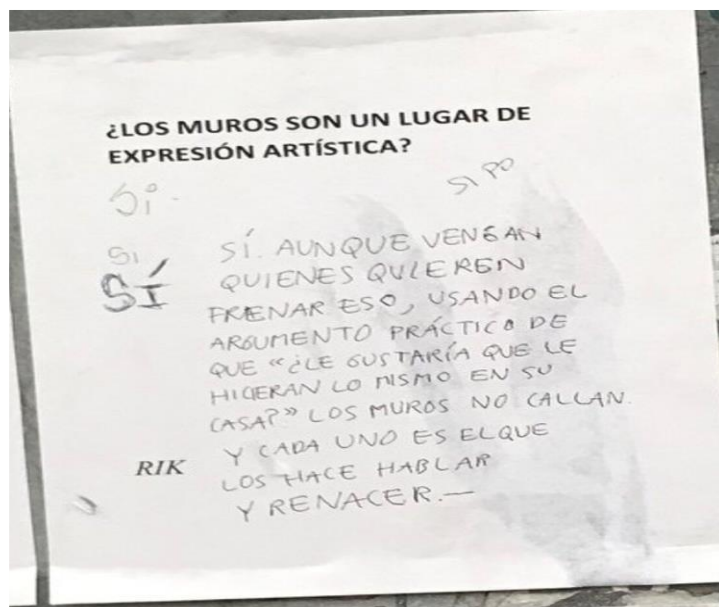 ¿LOS MUROS SON UN LUGAR DE
EXPRESIÓN ARTÍSTICA?
Si.
SI PO
SI
SÍ
SÍ. AUNQUE VENGAN
QUIENES QUIEREN
FRENAR ESO, USANDO EL
ARGUMENTO PRÁCTICO DE
QUE "¿LE GUSTARÍA QUE LE
HICIERAN LO MISMO EN SU
CASA?" LOS MUROS NO CALLAN.
Y CADA UNO ES EL QUE
LOS HACE HABLAR
Y RENACER.—
RIK